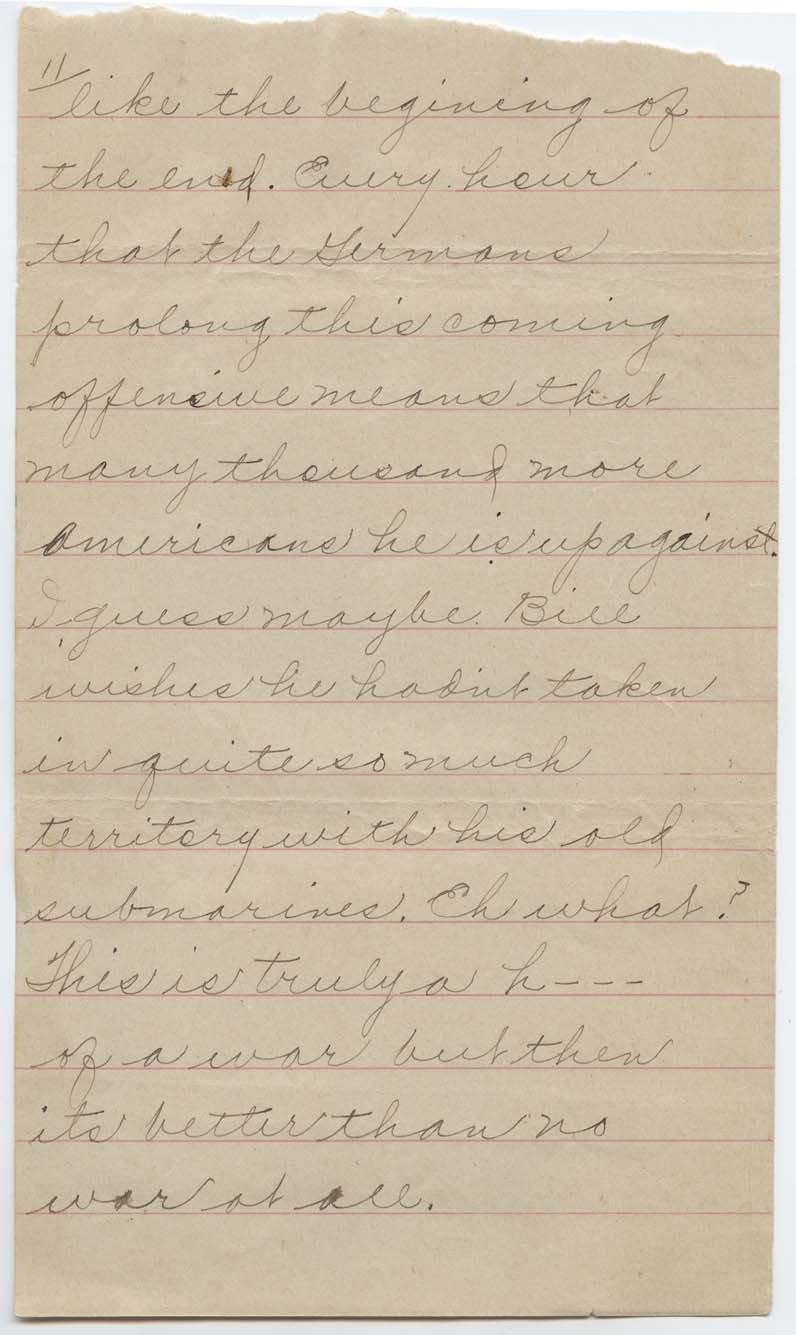 11
like the begining of
the end. Every hour
that the Germans
prolong this coming
offensive means that
many thousand more
Americans he is up against.
I guess maybe Bill
wishes he hadnt taken
in quite so much
territory with his old
submarines. Eh what?
This is truly a h---
of a war but then
its better than no
war at all.